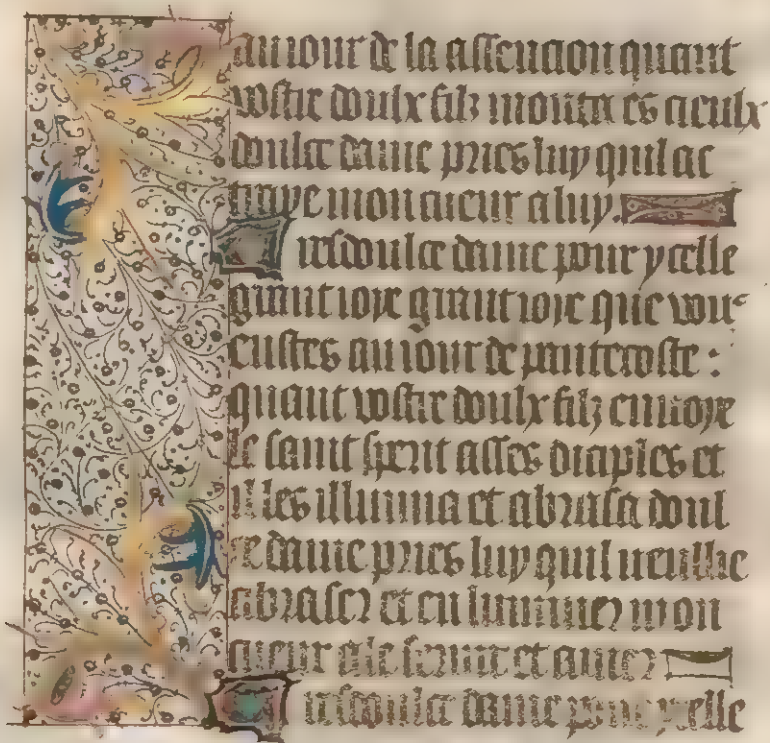 au iour de la assencion quant
vostre doulx filz monta es cieulx
doulce dame pries luy quil at
traye mon cueur a luy.
Tresdoulce dame pour ycelle
grant ioye grant ioye que vous
eustes au iour de pantecoste :
quant vostre doulx filz envoye
le saint sperit asses diciples et
il les illumina et abrasa doul
ce dame pries luy quil veuille
abraser et en luminer mon
cueur a le seruir et amer
Tresdoulce dame pour ycelle